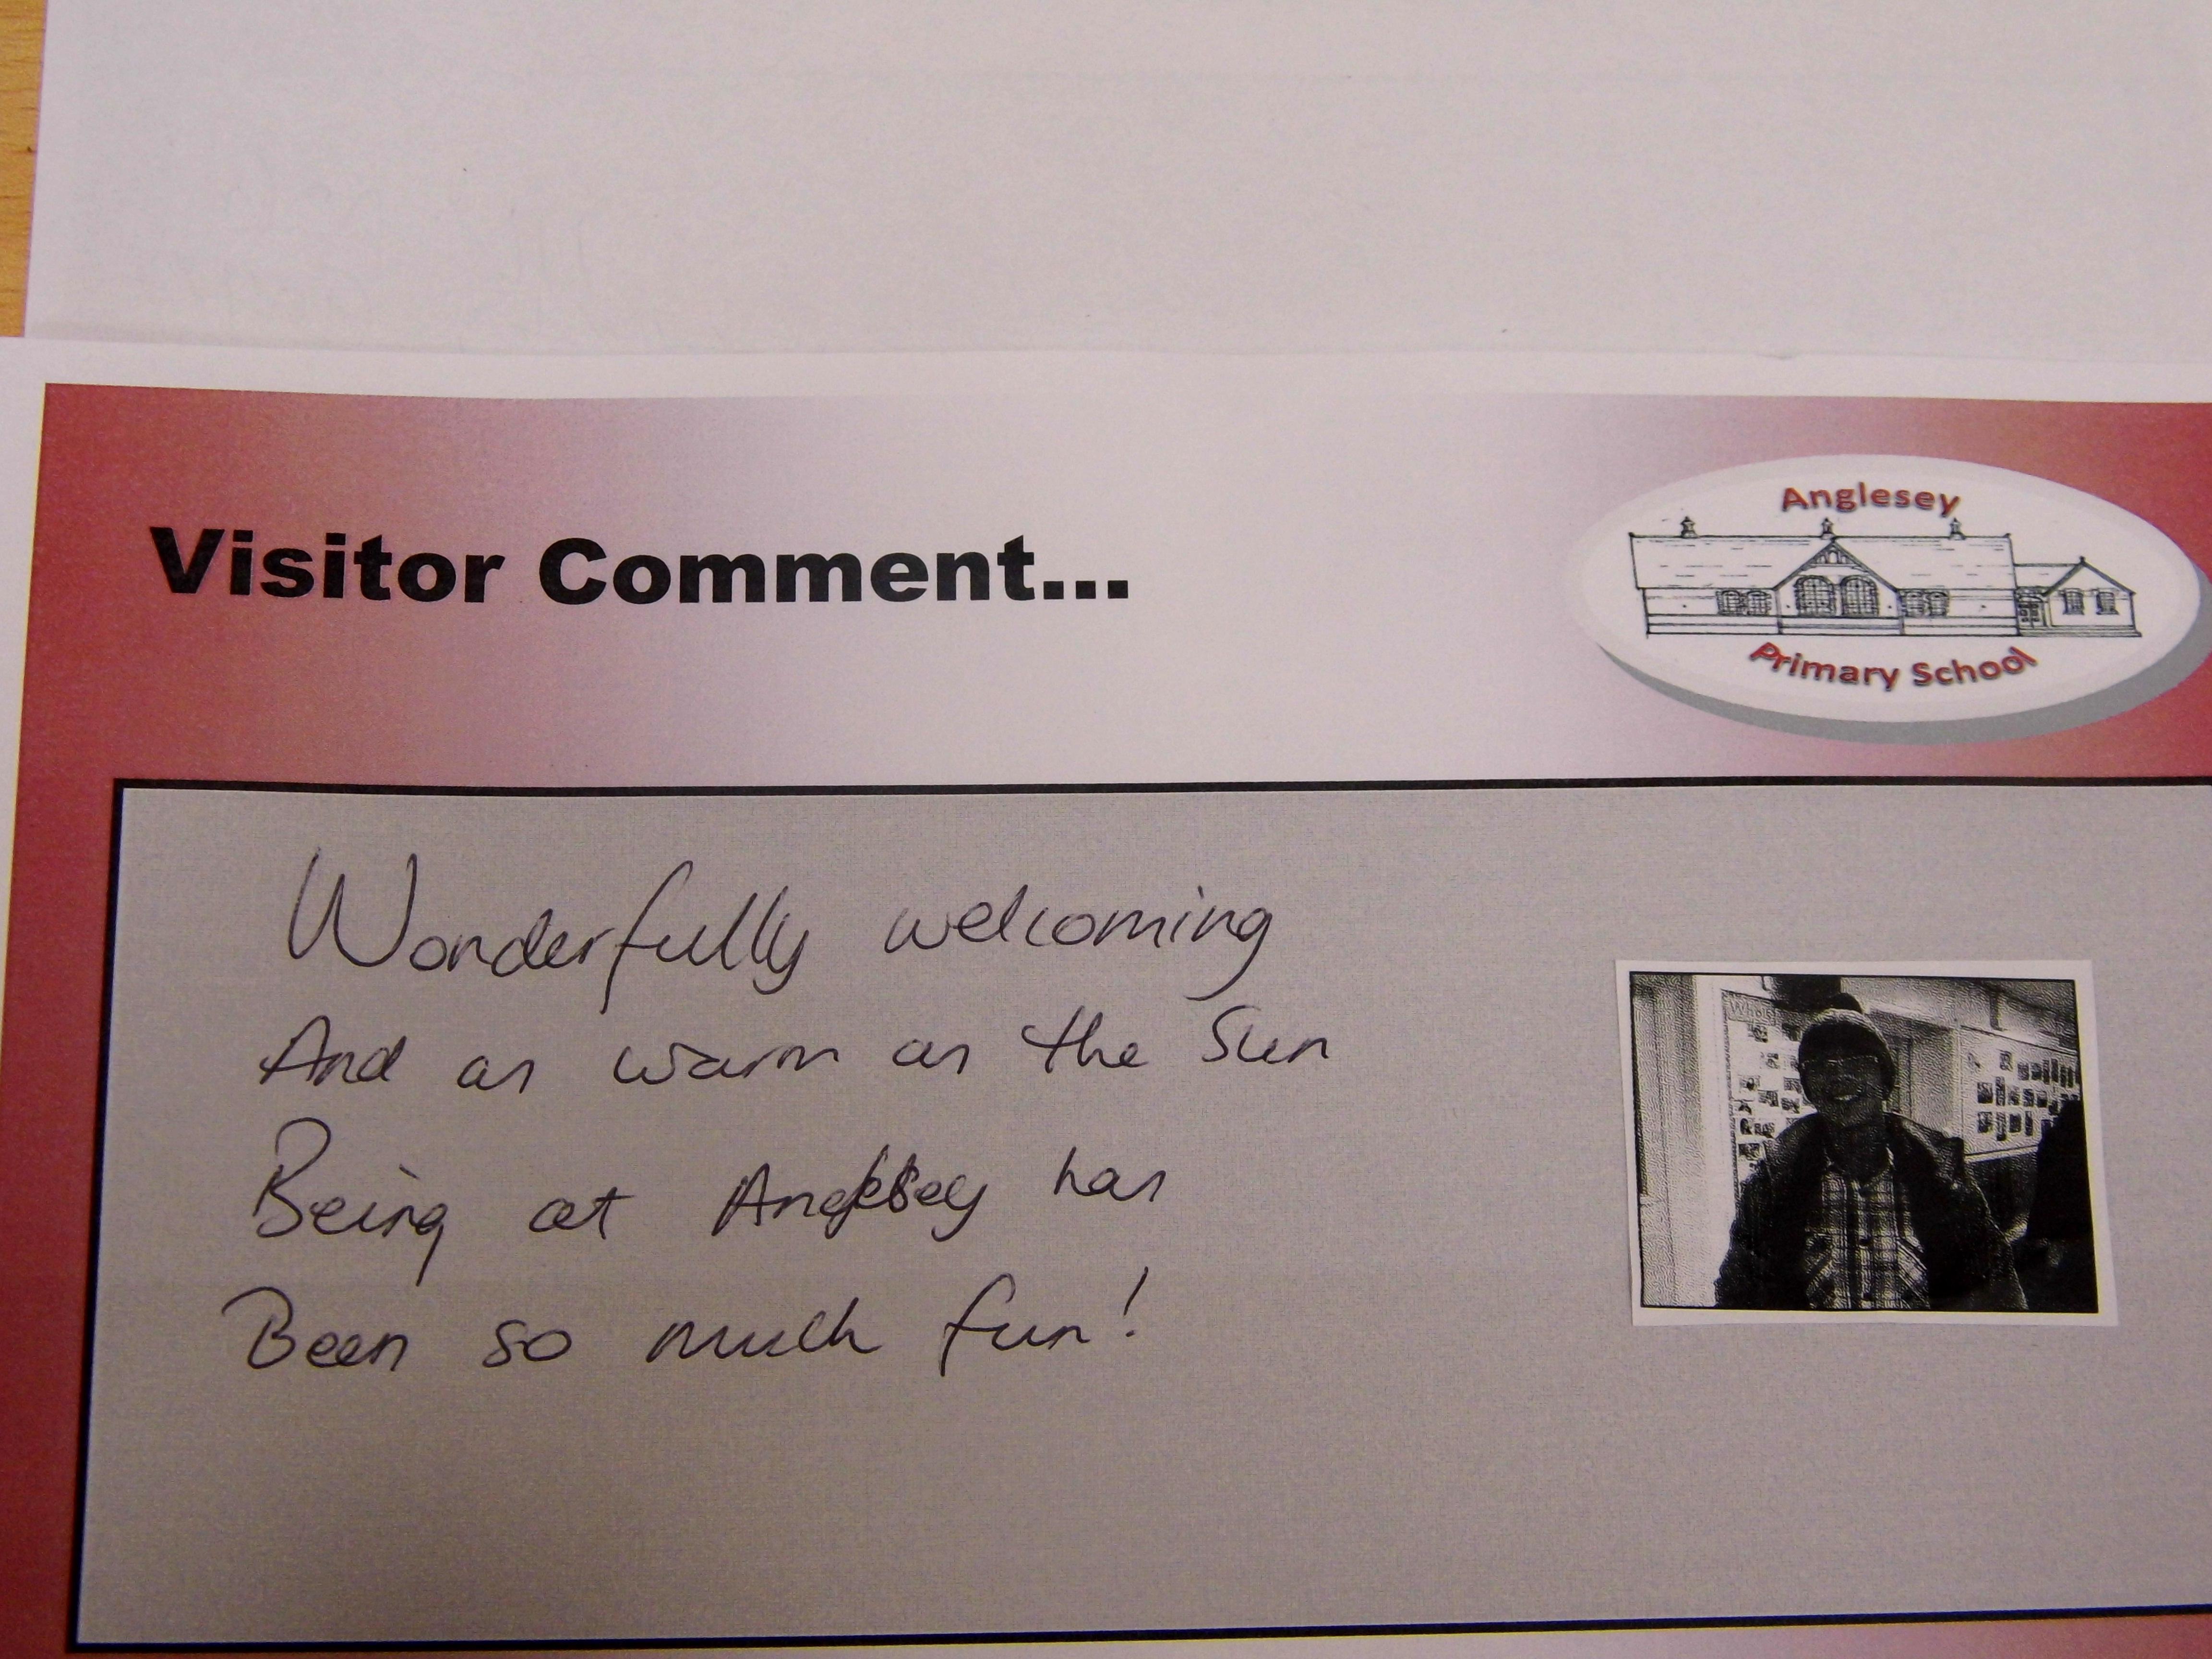 Visitor Comment...
Anglesey
Primary School
Wonderfully welcoming
And as warm as the Sun
Being at Anglesey has
Been so much fun!